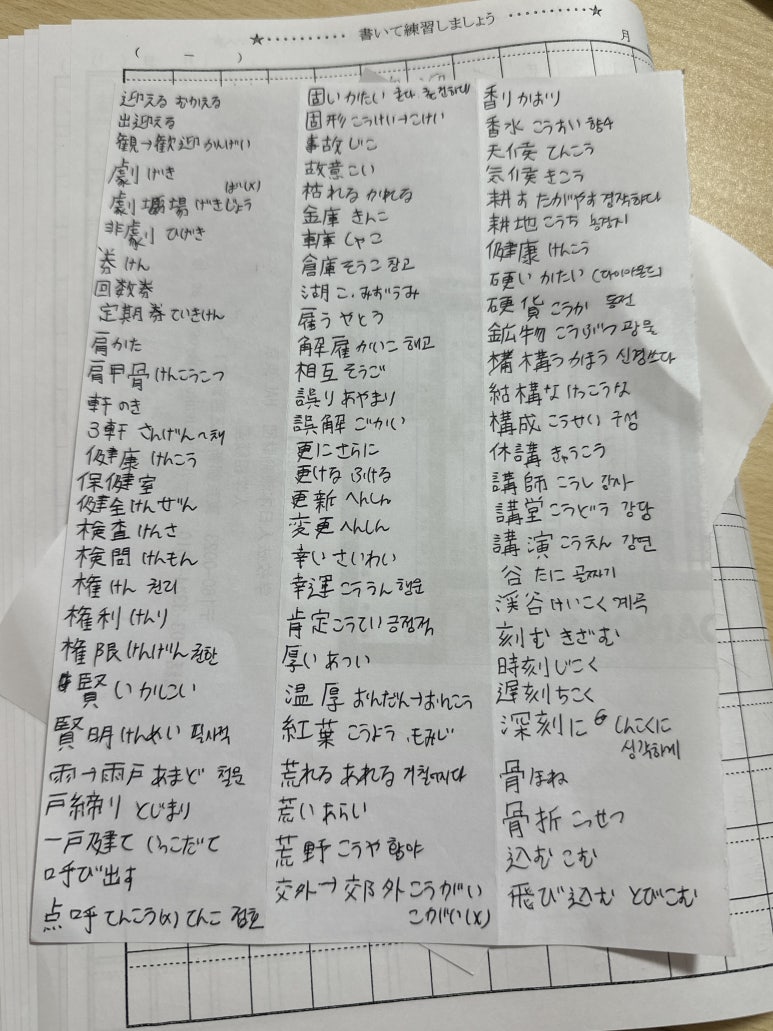 ★・・・・・・・・・・ 書いて練習しましょう ・・・・・・・・・・★
( ー )
月
迎える むかえる
出迎える
観→歓迎 かんげい
劇 げき
ば(x)
劇場 げきじょう
非劇 ひげき
券 けん
回数券
定期券 ていきけん
肩 かた
肩甲骨 けんこうこつ
軒 のき
3軒 さんげん
健康 けんこう
保健室
健全 けんぜん
検査 けんさ
検問 けんもん
権 けん 권리
権利 けんり
権限 けんげん 권한
賢い かしこい
賢明 けんめい
雨→雨戸 あまど
戸締り とじまり
一戸建て いっこだて
呼び出す
点呼 てんこう(x) てんこ 점호
固い かたい
固形 こうけい→こけい
事故 じこ
故意 こい
枯れる かれる
金庫 きんこ
車庫 しゃこ
倉庫 そうこ 창고
湖 こ、みずうみ
雇う やとう
解雇 かいこ 해고
相互 そうご
誤り あやまり
誤解 ごかい
更に さらに
更ける ふける
更新 へんしん
変更 へんしん
幸い さいわい
幸運 こううん 행운
肯定 こうてい 긍정적
厚い あつい
温厚 おんだん→おんこう
紅葉 こうよう、もみじ
荒れる あれる 거칠어지다
荒い あらい
荒野 こうや 황야
交外→郊外 こうがい
こがい(x)
香り かおり
香水 こうすい 향수
天候 てんこう
気候 きこう
耕す たがやす 경작하다
耕地 こうち 농경지
健康 けんこう
硬い かたい (다이아몬드)
硬貨 こうか 동전
鉱物 こうぶつ 광물
構う かまう 신경쓰다
結構な けっこうな
構成 こうせい 구성
休講 きゅうこう
講師 こうし 강사
講堂 こうどう 강당
講演 こうえん 강연
谷 たに 골짜기
渓谷 けいこく 계곡
刻む きざむ
時刻 じこく
遅刻 ちこく
深刻に しんこくに
심각하게
骨 ほね
骨折 こっせつ
込む こむ
飛び込む とびこむ